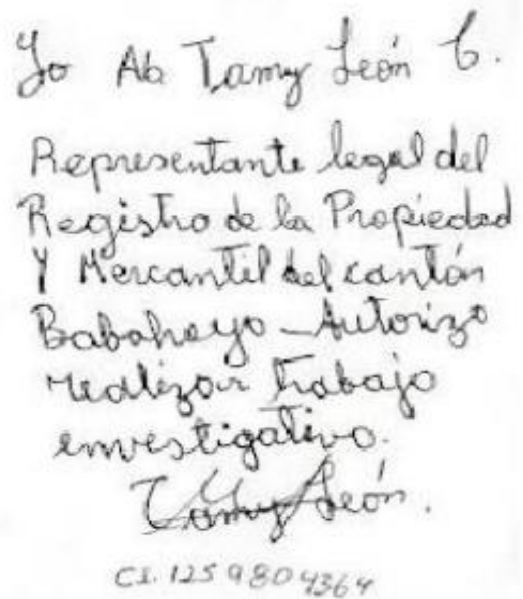 Yo Ab Tamy León C.
Representante legal del
Registro de la Propiedad
Y Mercantil del cantón
Babahoyo - Autorizo
realizar trabajo
envestigativo.
Tamy León.
CI. 1259804364